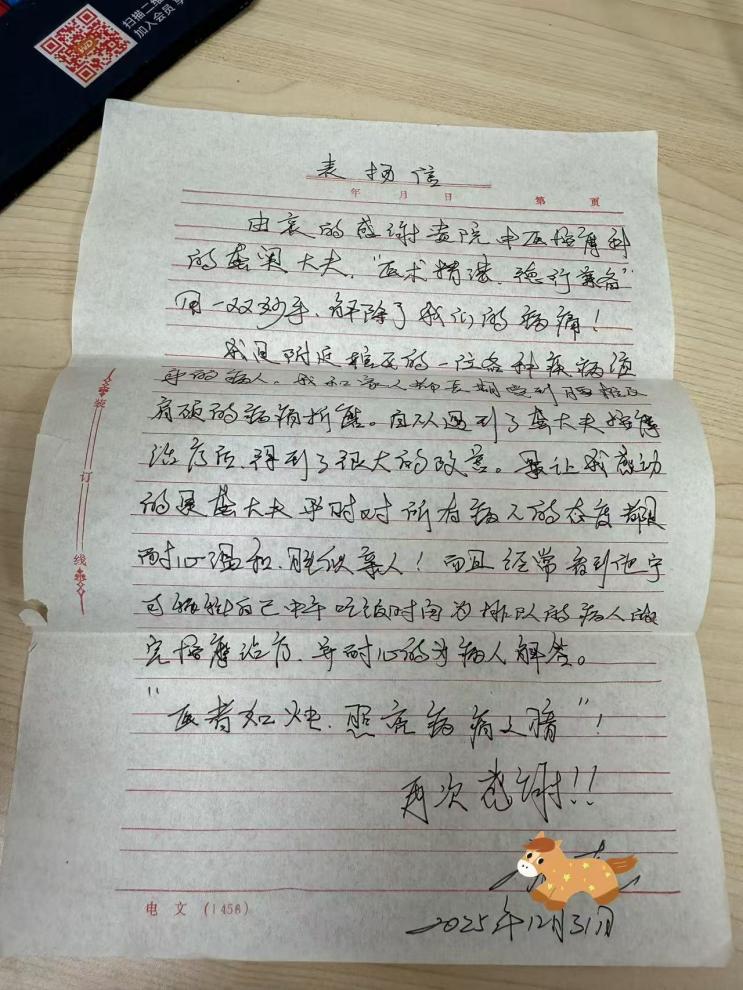 扫描二维
加入会员 享
表扬信
年 月 日 第 页
由衷的感谢贵院中医按摩科
的龚奥大夫,“医术精湛,德行兼备”
用一双妙手,解除了我们的病痛!
我是附近居民的一位各种疾病缠
身的病人。我和家人都长期受到腰椎及
肩颈的病痛折磨。自从遇到了龚大夫按摩
治疗后,得到了很大的改善。最让我感动
的是龚大夫平时对所有病人的态度都是
耐心温和,胜似亲人!而且经常看到他宁
可牺牲自己中午吃饭时间为排队的病人做
完按摩治疗,并耐心的为病人解答。
“医者如烛,照亮病痛之暗”!
再次感谢!!
2025年12月31日
装订线
电文(1456)